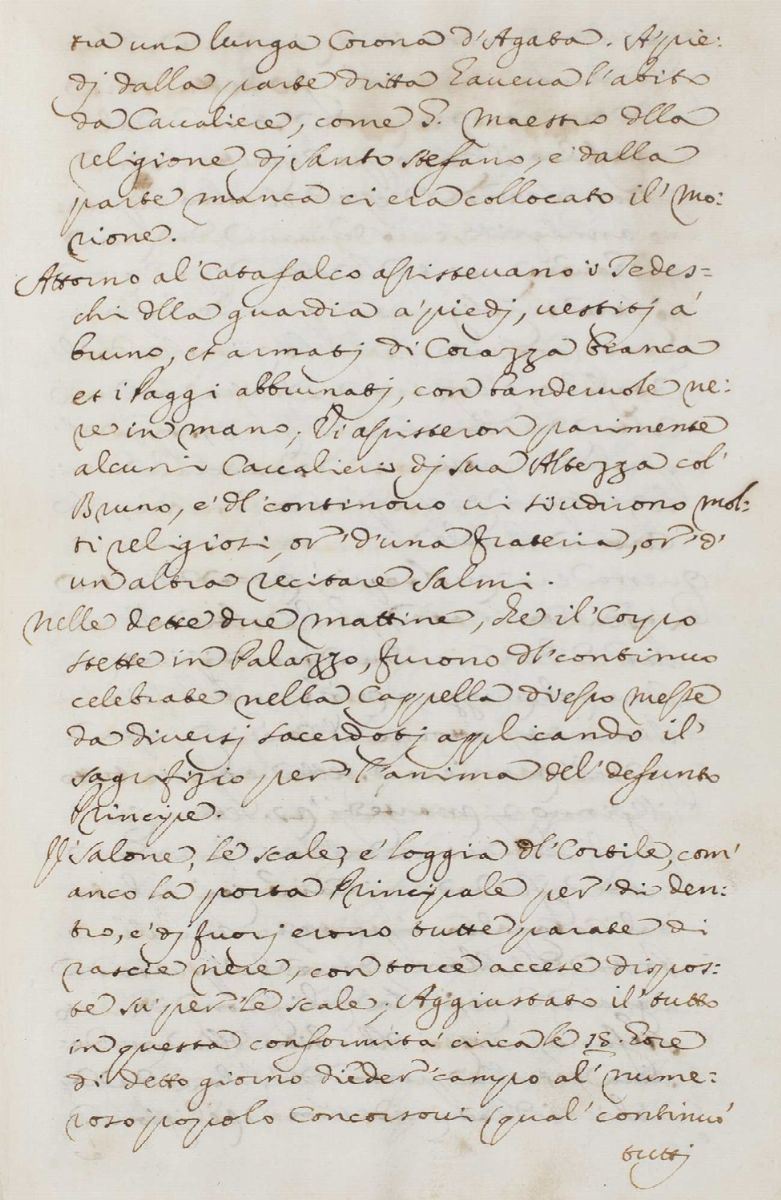 tra una lunga Corona d'Agata. A' pie:
dj dalla parte dritta haueua l'abito
da Caualiere, come G. Maestro dlla
religione dj Santo Stefano, e' dalla
parte manca ci era collocato il' mo:
rione.
Attorno al' Catafalco assisteuano i Tedes=
chi dlla guardia a' piedj, uestitj á
bruno, et armatj di Corazza bianca
et i Paggi abbrunatj, con banderuole ne:
re in mano; Vi assisteron parimente
alcuni Caualieri dj sua Altezza col'
Bruno, e' dl' continouo ui si udirono mol:
ti religiosi, or' d'una frateria, or' d'
un altra recitare salmi.
Nelle dette due mattine, che il' Corpo
stette in Palazzo, furono dl' continuo
celebrate nella Cappella di esso messe
da diuersj sacerdotj applicando il'
sagrifizio per' l'anima del' defunto
Principe.
Il Salone, le scale, e' loggia dl' Cortile, com'
anco la porta Principale per' di den:
tro, e' dj fuorj erono tutte parate di
rascie nere, con torce accese dispos=
te su per' le scale; Aggiustato il' tutto
in questa conformità circa le 18. hore
di detto giorno dieder' campo al' nume:
roso popolo Concorsoui (qual' continuó
tuttj